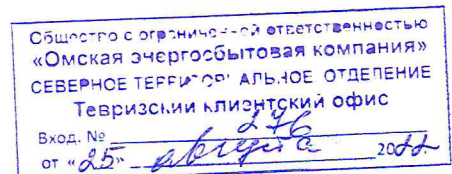 Общество с ограниченной ответственностью
«Омская энергосбытовая компания»
СЕВЕРНОЕ ТЕРРИТОРИАЛЬНОЕ ОТДЕЛЕНИЕ
Тевризский клиентский офис
Вход. № 276
от «25» августа 2022